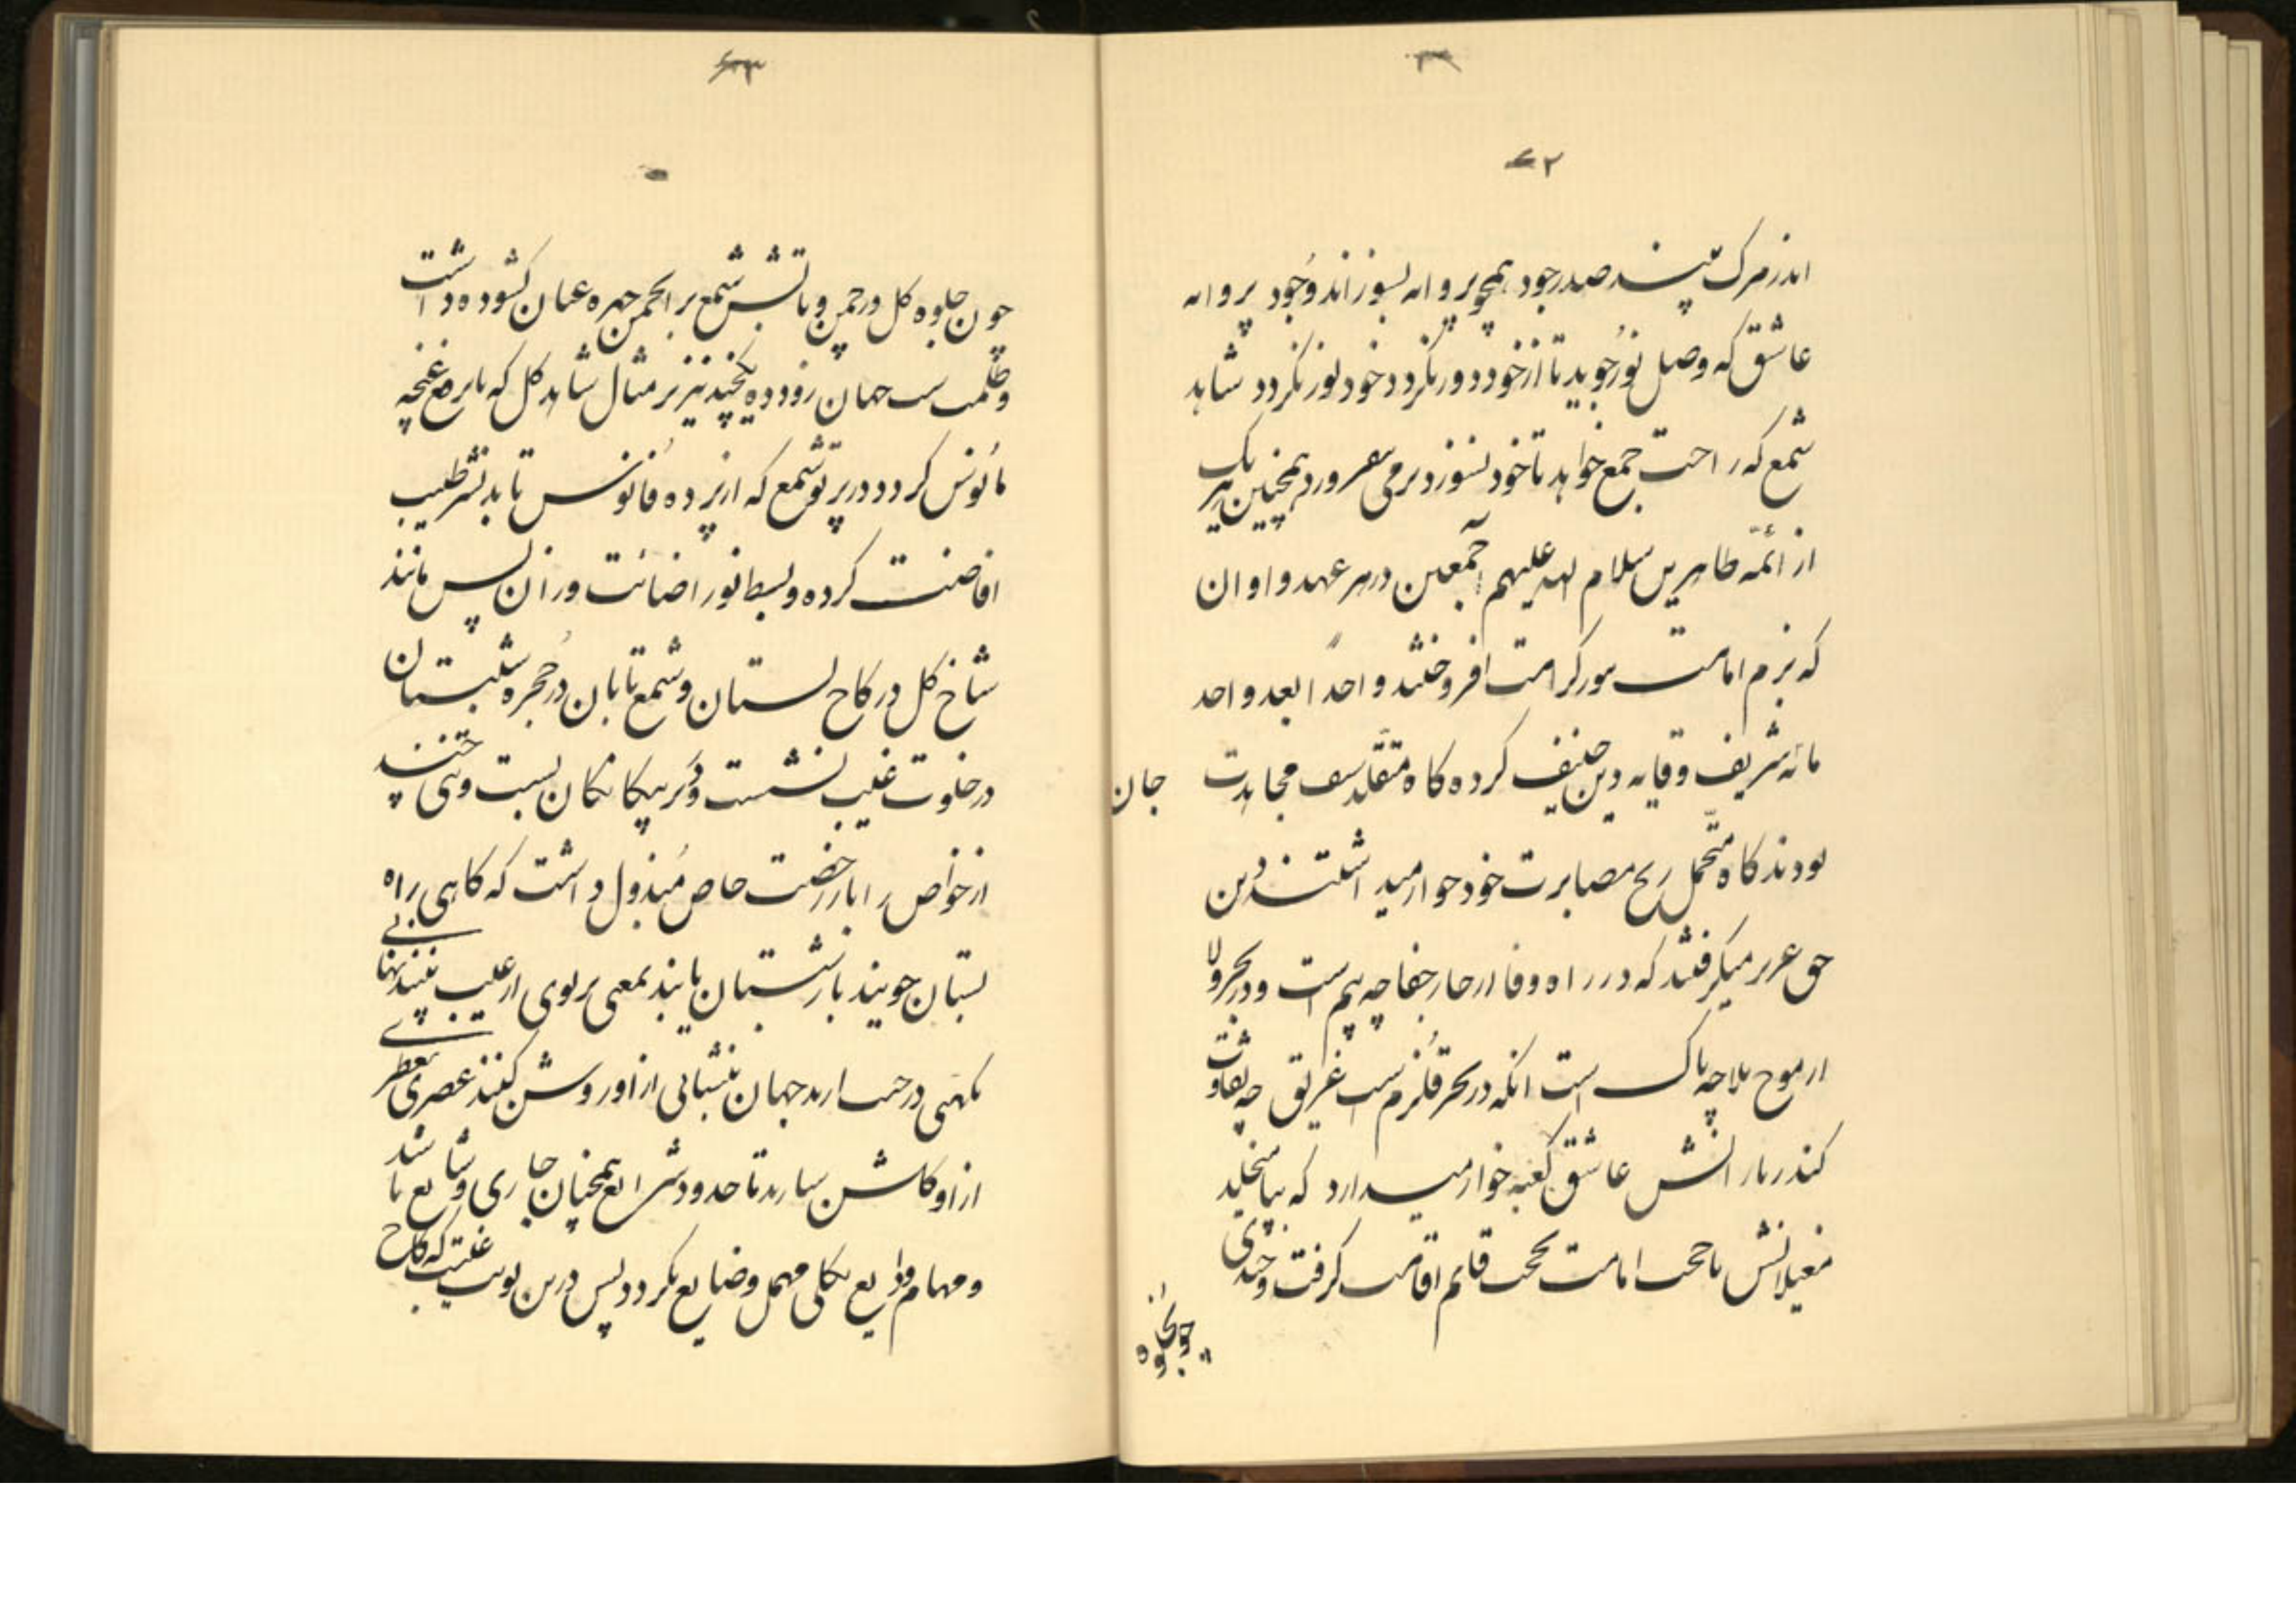 ۲
اندر مرک بیند صد رجود همچو پروانه بسوزاند وجود پروانه
عاشق که وصل نور جوید تا از خود دور نگردد خود نور نگردد شاهد
شمع که راحت جمع خواهد تا خود نسوزد برمی نیفروزد همچنین هر یک
از ائمّه طاهرین سلام الله علیهم اجمعین در هر عهد و اوان
که بزم امامت بنور کرامت افروختند واحداً بعد واحد
شریف وقایه دین حنیف کرده کاه متقلّد سیف مجاهدت جان
بودند کاه متحمّل رنج مصابرت خود خوار میداشتند و دین
حق عزیز میگرفتند که در راه وفا از خار جفا چه بیم است و در بحر ولا
از موج بلا چه باک است انکه در بحر قلزم است غریق چه تفاوت
کند ز بارانش عاشق کعبه خوار میدارد که بپا میخلید
مغیلانش تا حجت امامت بحجت قائم اقامت گرفت و چندی
چون جلوه
چون جلوه کل در چمن و تابش شمع بر انجمن چهره عیان کشوده داشت
و ظلمت از جهان زدوده چند نیز بر مثال شاهد کل که با برقع غنچه
مأنوس کردد و پرتو شمع که از پرده فانوس تابد نشر طیب
افاضت کرده و بسط نور اضائت و از ان پس مانند
شاخ کل در کاخ بستان و شمع تابان در حجره شبستان
در خلوت غیب نشست و در بر بیکانکان ببست و تنی چند
از خواص را بار رخصت خاص مبذول داشت که کاهی راه
بستان جویند بار شبستان یابند یعنی بوی از غیب پنهانی
نکهتی در جهان بتابانی از او روشن کنند عصری معطر
از او کلشن سازند تا حدود شرایع همچنان جاری و شایع باشد
و مهام ودایع بکلی مهمل و ضایع نکردد پس درین نوبت غیبت که کاخ